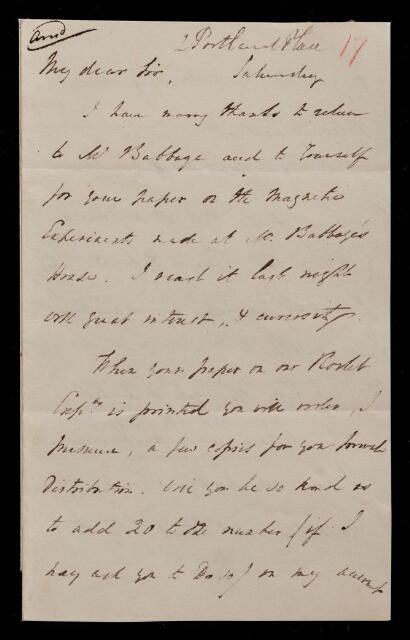 Ansd
2 Portland Place
17
My dear Sir,
Saturday
I have many thanks to return
to Mr Babbage and to Yourself
for your paper on the Magnetic
Experiments made at Mr. Babbage's
House. I read it last night
with great interest, & curiosity.
When your paper on our Rocket
Expts is printed you will order, I
presume, a few copies for your private
Distribution. Will you be so kind as
to add 20 to the number (if I
may ask you to do so) on my account